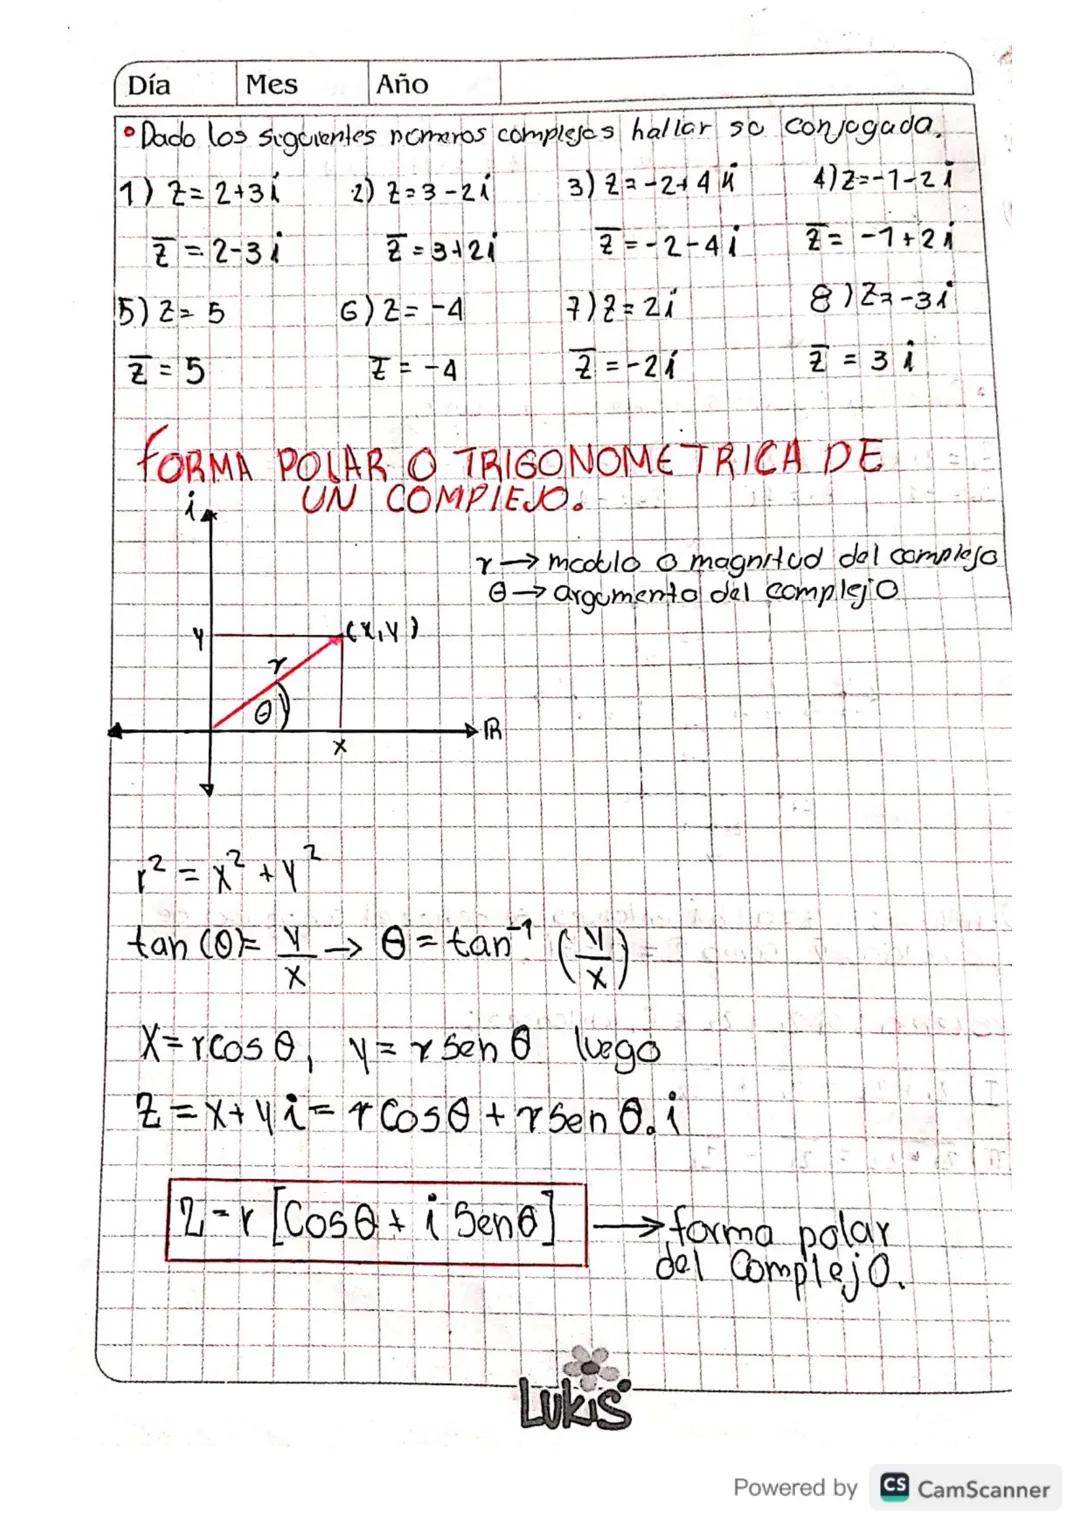 Día Mes Año
° Dado los siguientes numeros complejos hallar su conjugada.
1) z = 2+3i 2) z = 3-2i 3) z = -2+4i 4) z = -1-2i
z̅ = 2-3i z̅ = 3+2i z̅ = -2-4i z̅ = -1+2i
5) z = 5 6) z = -4 7) z = 2i 8) z = -3i
z̅ = 5 z̅ = -4 z̅ = -2i z̅ = 3i
FORMA POLAR O TRIGONOMETRICA DE
UN COMPLEJO.
i
r → modulo o magnitud del complejo
θ → argumento del complejo
y (x,y)
r
θ
ℝ
x
r² = x² + y²
tan(θ) = y/x → θ = tan⁻¹ (y/x)
x = r cos θ, y = r sen θ luego
z = x + yi = r Cosθ + r Sen θ. i
z = r [Cosθ + i Senθ] → forma polar
del Complejo.
Lukis
Powered by CS CamScanner